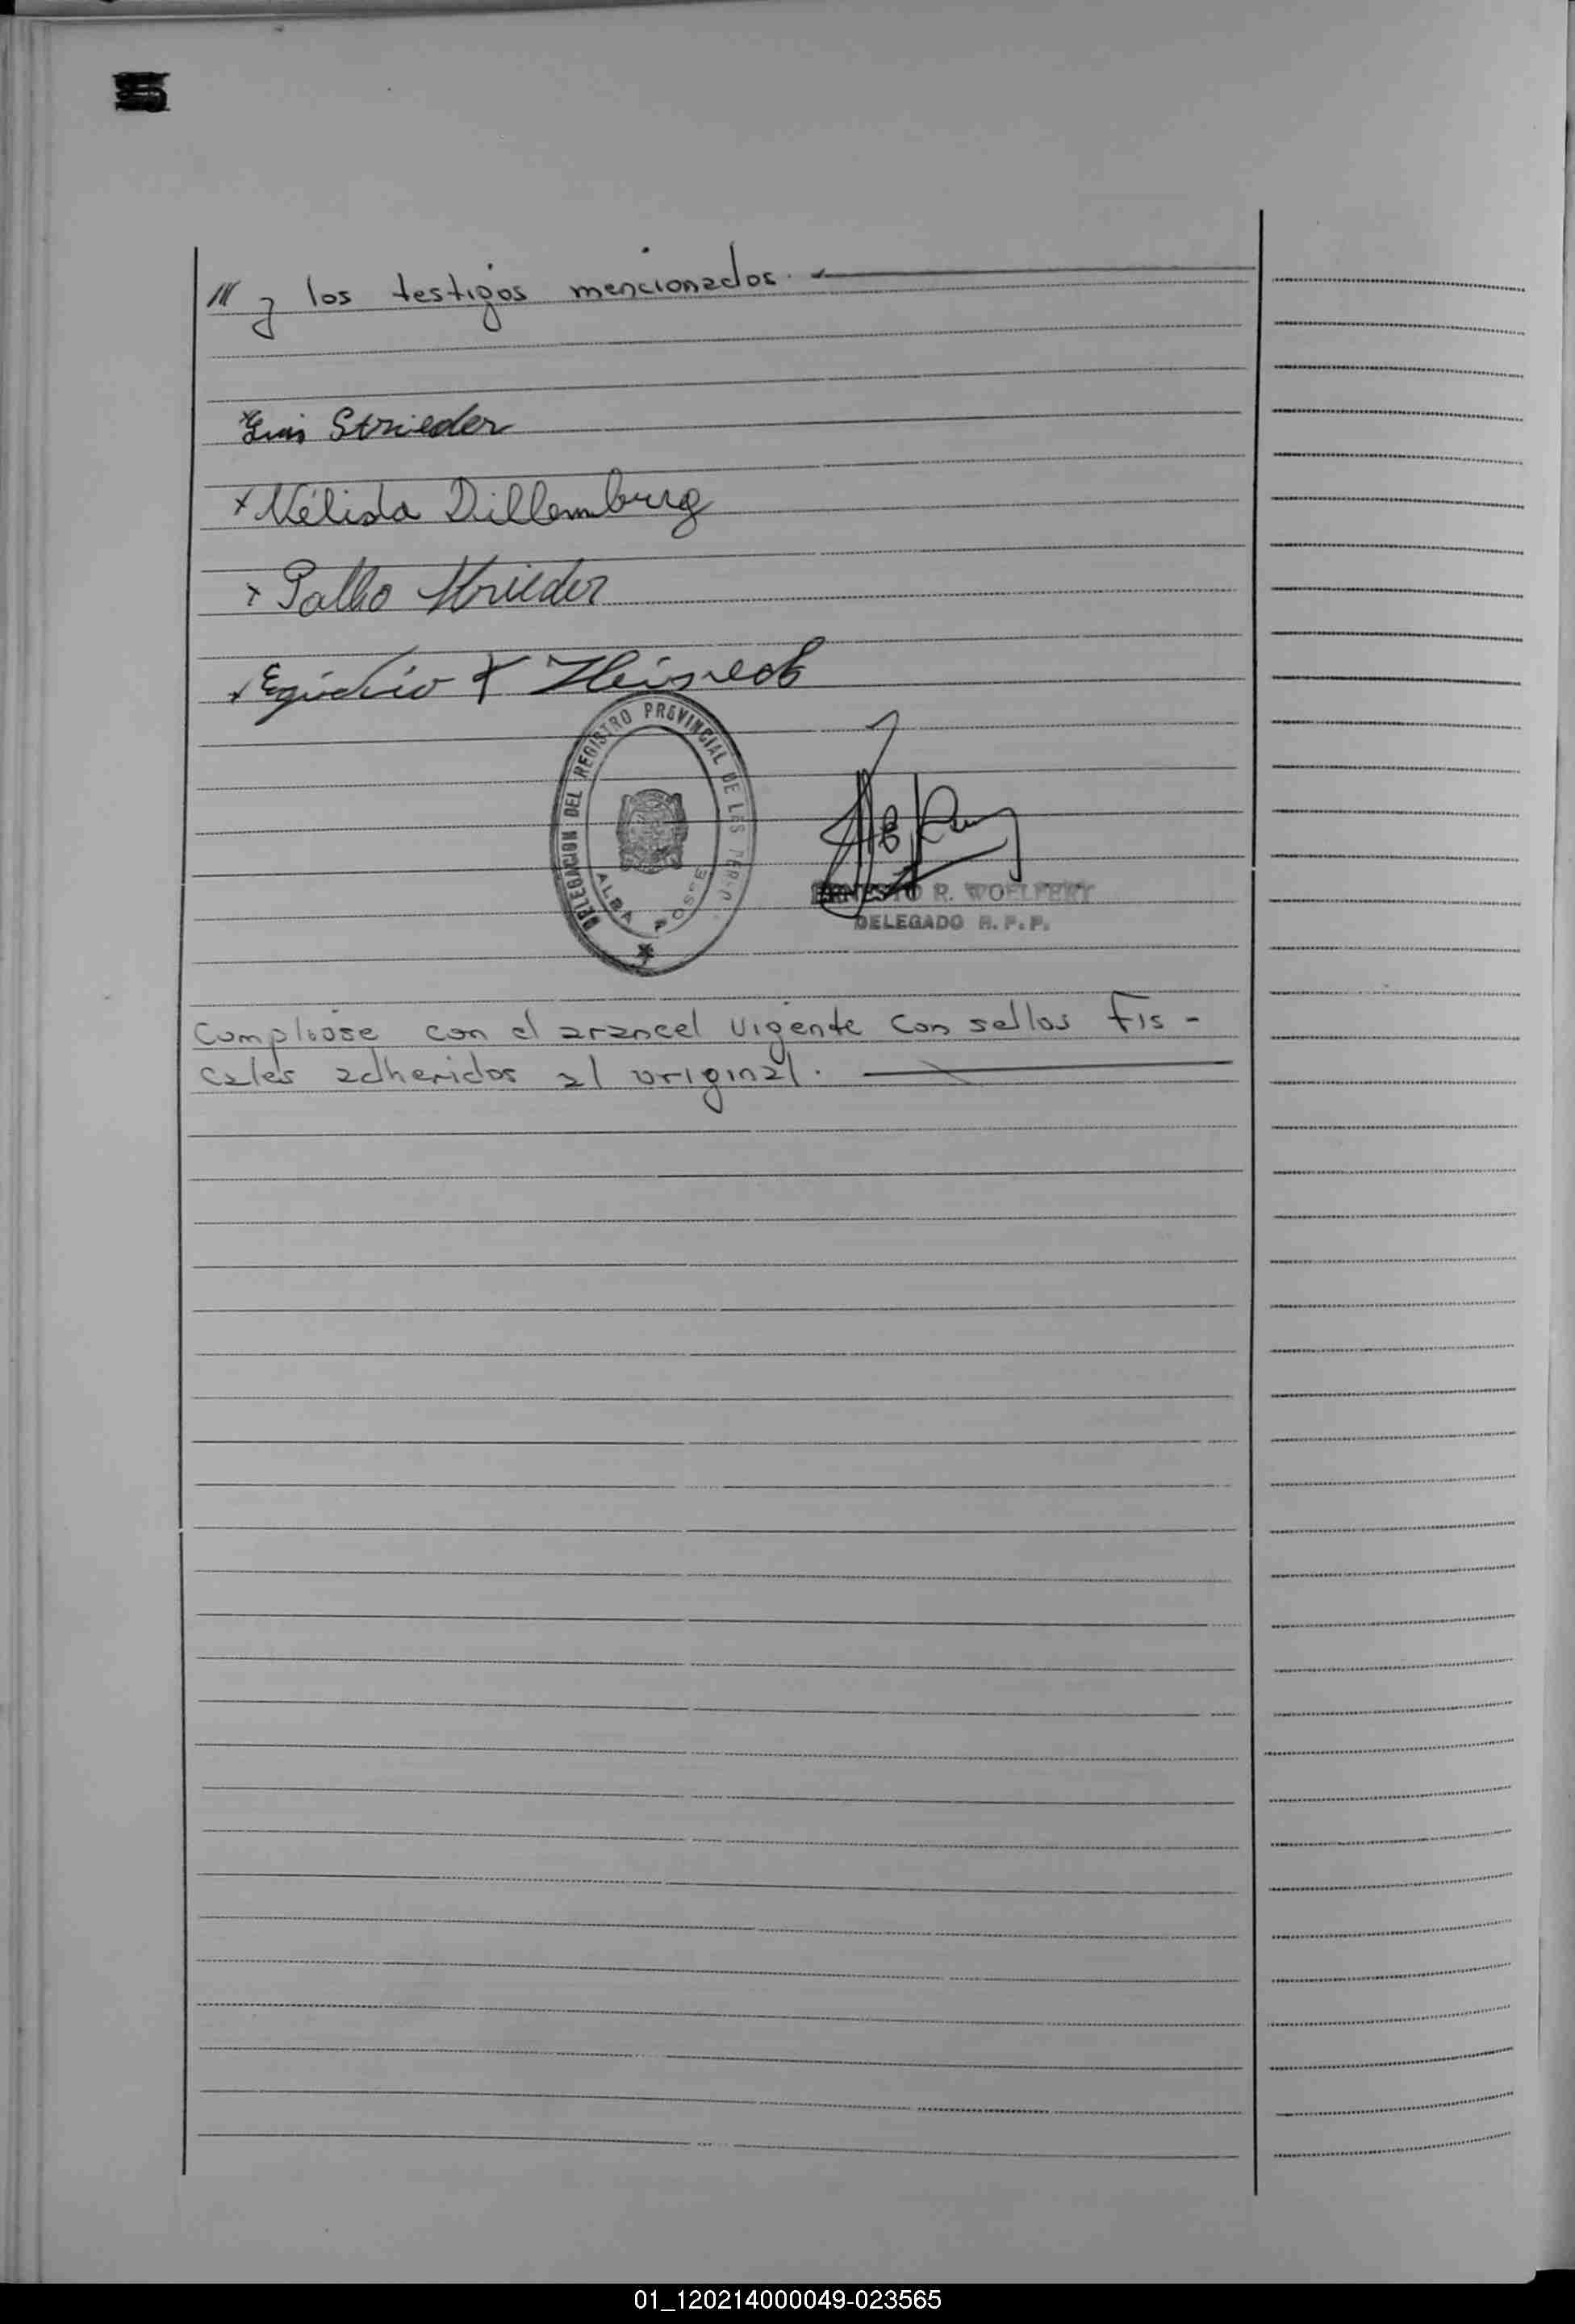 /// y los testigos mencionados. -
x Luis Strieder
x Nélida Dillemburg
x Strieder
x Egidio
DELEGACION DEL REGISTRO PROVINCIAL DE LAS PERS.
ALBA POSSE
ERNESTO R. WOELFERT
DELEGADO R. P. P.
Cumpliose con el arancel vigente con sellos Fis-
cales adheridos al original. -
01_120214000049-023565